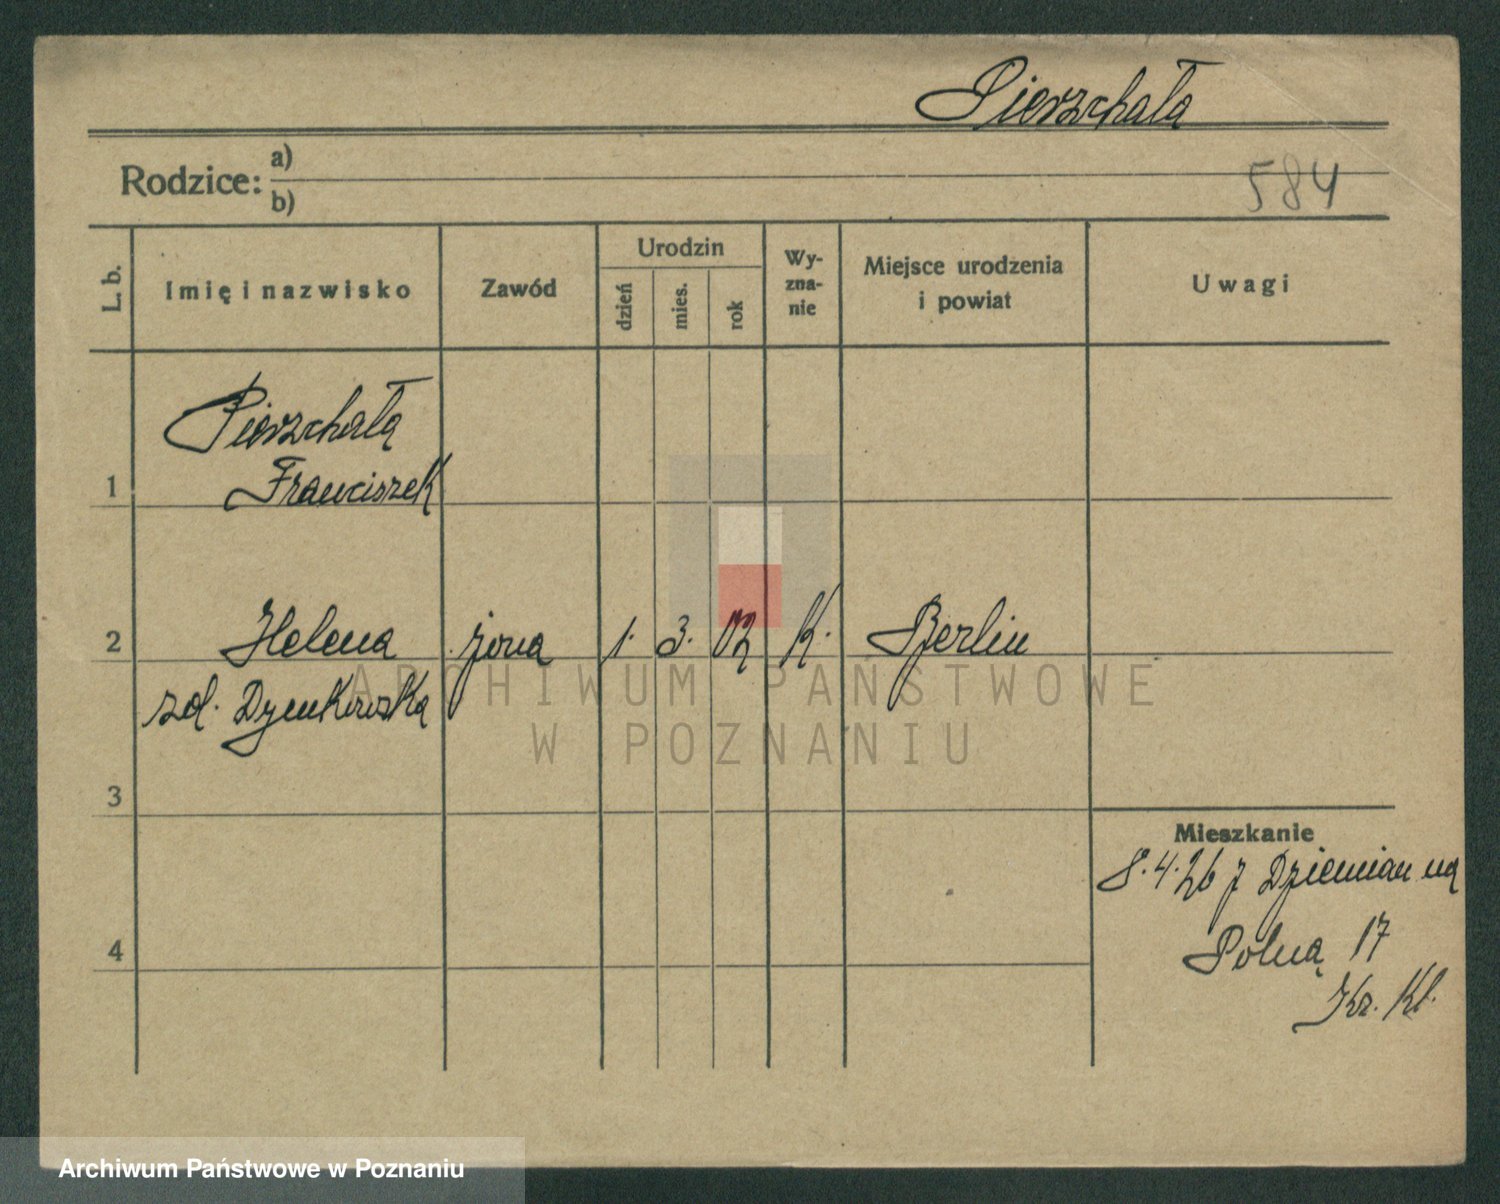 Pierzchała
Rodzice: a)
b)
584
L. b.
Imię i nazwisko
Zawód
Urodzin
dzień
mies.
rok
Wy-
zna-
nie
Miejsce urodzenia
i powiat
Uwagi
Pierzchała
1 Franciszek
2 Helena żona 1. 3. 02 K. Berlin
zd. Dzenkowska
ARCHIWUM PAŃSTWOWE
W POZNANIU
3
Mieszkanie
8.4.26 z Dziemian na
4 Polną 17
Kl.
Archiwum Państwowe w Poznaniu